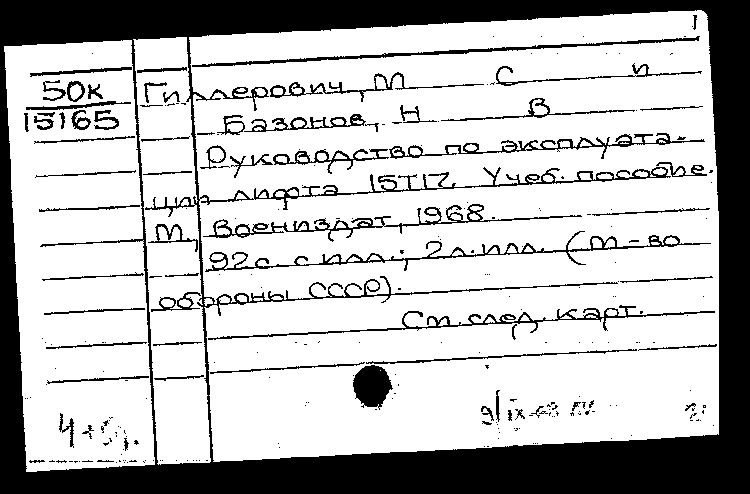 1
50к
15165
Гиллерович, М С и
Базонов, Н В
Руководство по эксплуата-
ции лифта 15Т17. Учеб. пособие.
М., Воениздат, 1968.
92 с. с илл.; 2 л. илл. (М-во
обороны СССР).
См. след. карт.